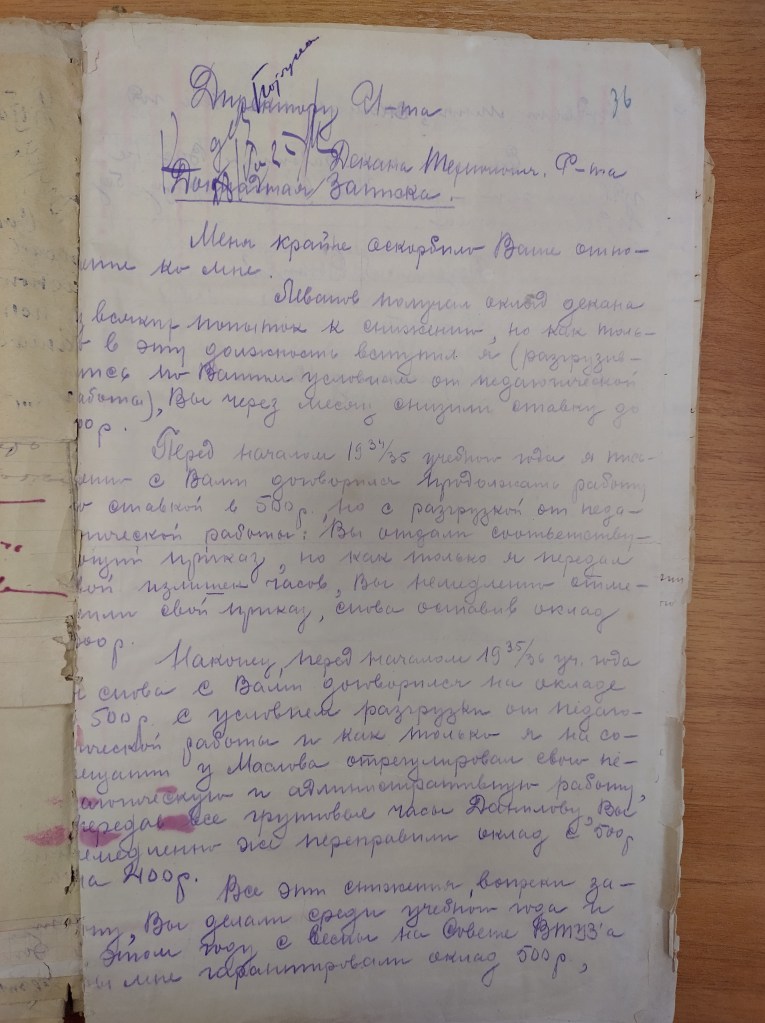 36
Директору И-та
Декана Термическ. Ф-та
Докладная Записка.
Меня крайне оскорбило Ваше отно-
ко мне.
Леванов получал оклад декана
всяких попыток к снижению, но как толь-
в эту должность вступил я (разгрузив-
по Вашим условиям от педагогической
аботы), Вы через месяц снизили ставку до
00р.
Перед началом 19 34/35 учебного года я пись-
енно с Вами договорился продолжать работу
ставкой в 500р., но с разгрузкой от педа-
гической работы: Вы отдали соответству-
ющий приказ, но как только я передал
вой излишек часов, Вы немедленно отме-
нили свой приказ, снова оставив оклад
400р.
Наконец, перед началом 19 35/36 уч. года
я снова с Вами договорился на окладе
500р. с условием разгрузки от педаго-
гической работы и как только я на со-
вещании у Маслова отрегулировал свою пе-
дагогическую и административную работу,
передав все групповые часы Данилову, Вы
немедленно же переправили оклад с 500р
на 400р.
Все эти снижения, вопреки за-
ну, Вы делали среди учебного года и
этом году с весны на Совете ВТУЗ'а
Вы мне гарантировали оклад 500р.,